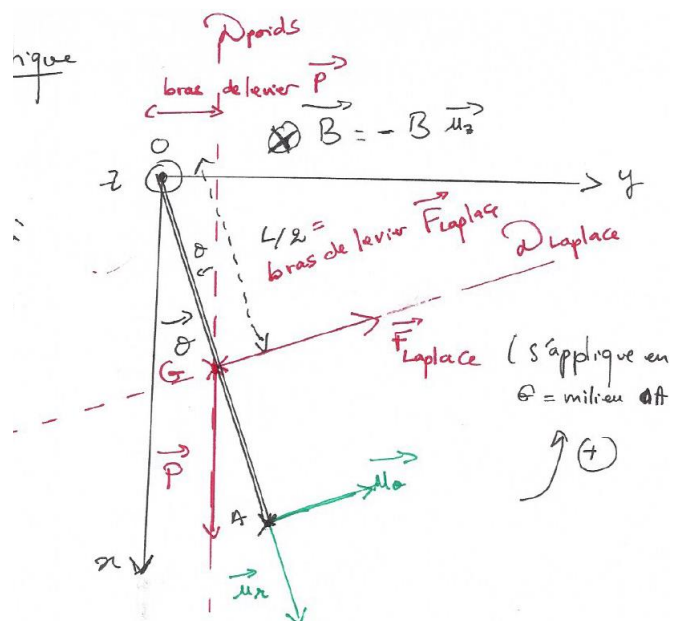 nique
Dpoids
bras de levier P
B = - B uz
O
z
y
L/2 =
bras de levier FLaplace
DLaplace
θ
θ
G
FLaplace
(s'applique en
G = milieu OA
+
P
uθ
A
x
ur